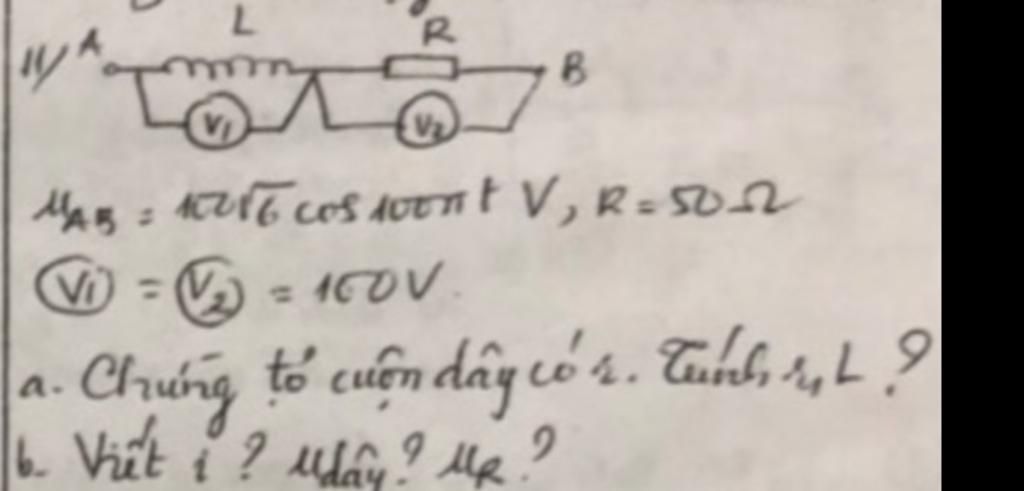 L R
11/ A B
V1 V2
u_AB = 100√6 cos 100πt V, R = 50Ω
(V1) = (V2) = 100V.
a. Chứng tỏ cuộn dây có r. Tính r, L?
b. Viết i? u dây? u_R?